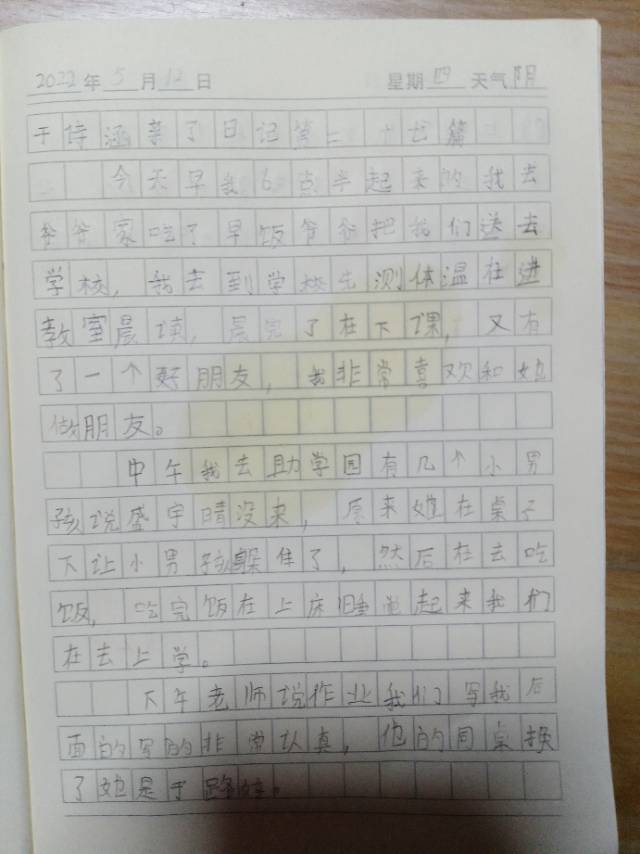 2022年5月12日 星期四 天气阴
于诗涵亲了日记第二十七篇
今天早我6点半起来的我去
爷爷家吃了早饭爷爷把我们送去
学校，我去到学校先测体温在进
教室晨读，晨完了在下课，又有
了一个好朋友，我非常喜欢和她
做朋友。
中午我去助学园有几个小男
孩说盛宇晴没来，原来她在桌子
下让小男孩躲住了，然后在去吃
饭，吃完饭在上床睡觉起来我们
在去上学。
下午老师说作业我们写我后
面的写的非常认真，他的同桌换
了她是于路娃。